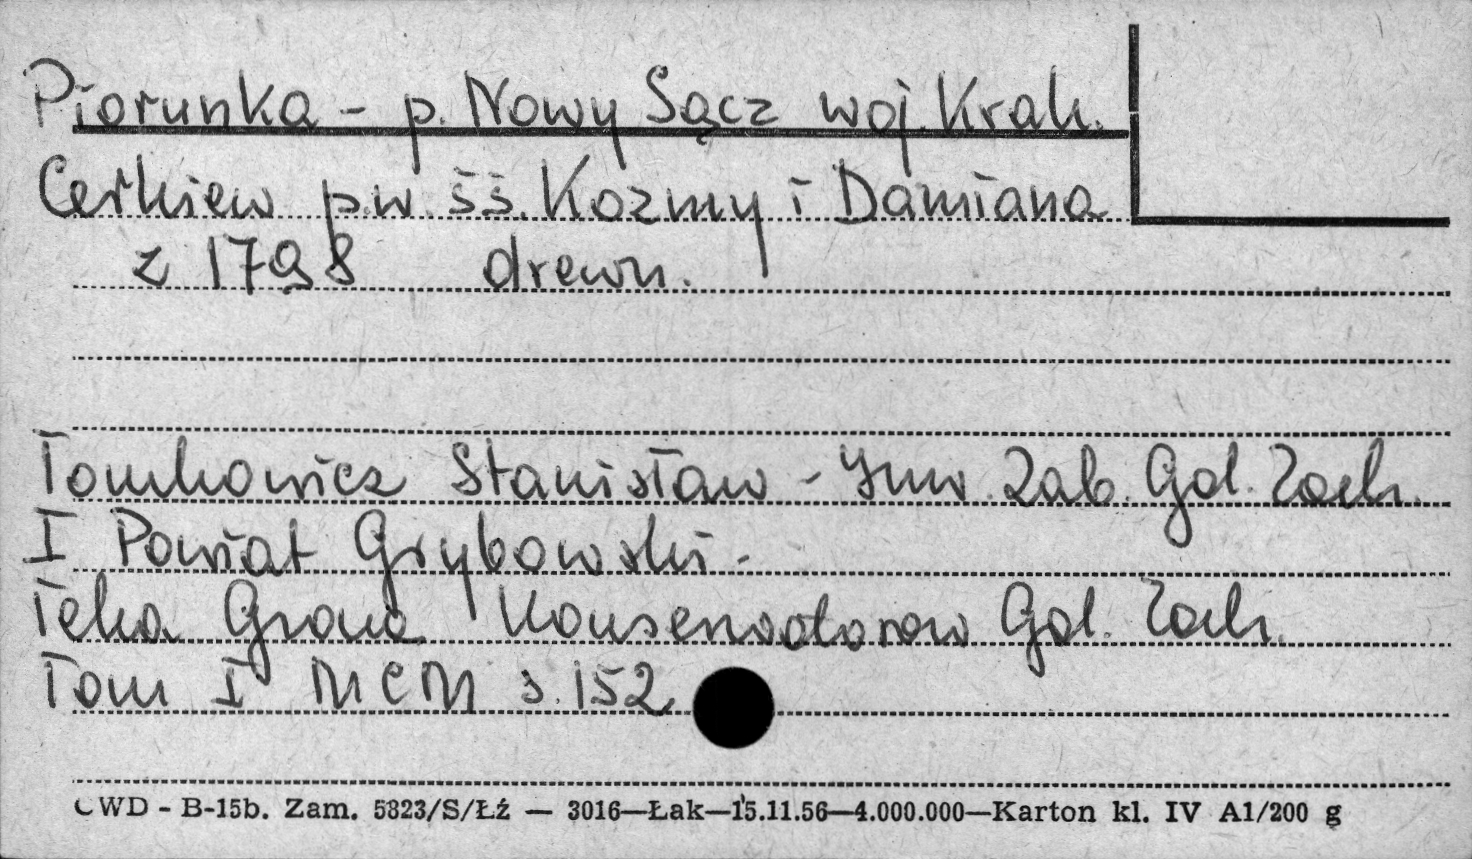 Piorunka - p. Nowy Sącz woj. Krak.
Cerkiew p.w. śś. Kozmy i Damiana
z 1798 drewn.
Tomkowicz Stanisław - Inw. Zab. Gal. Zach.
I Powiat Grybowski -
Teka Grona Konserwatorow Gal. Zach.
Tom I MCM s. 152
CWD - B-15b. Zam. 5823/S/Łź — 3016—Łak—15.11.56—4.000.000—Karton kl. IV A1/200 g